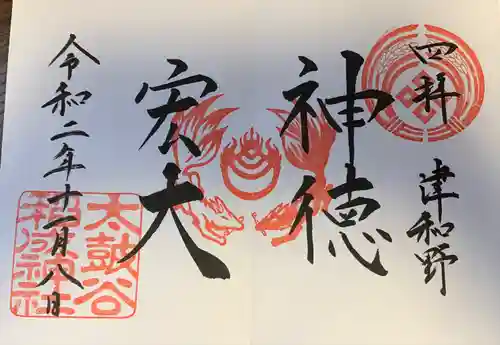 四拝
津和野
神徳
宏大
令和二年十一月八日
太鼓谷
稲成神社